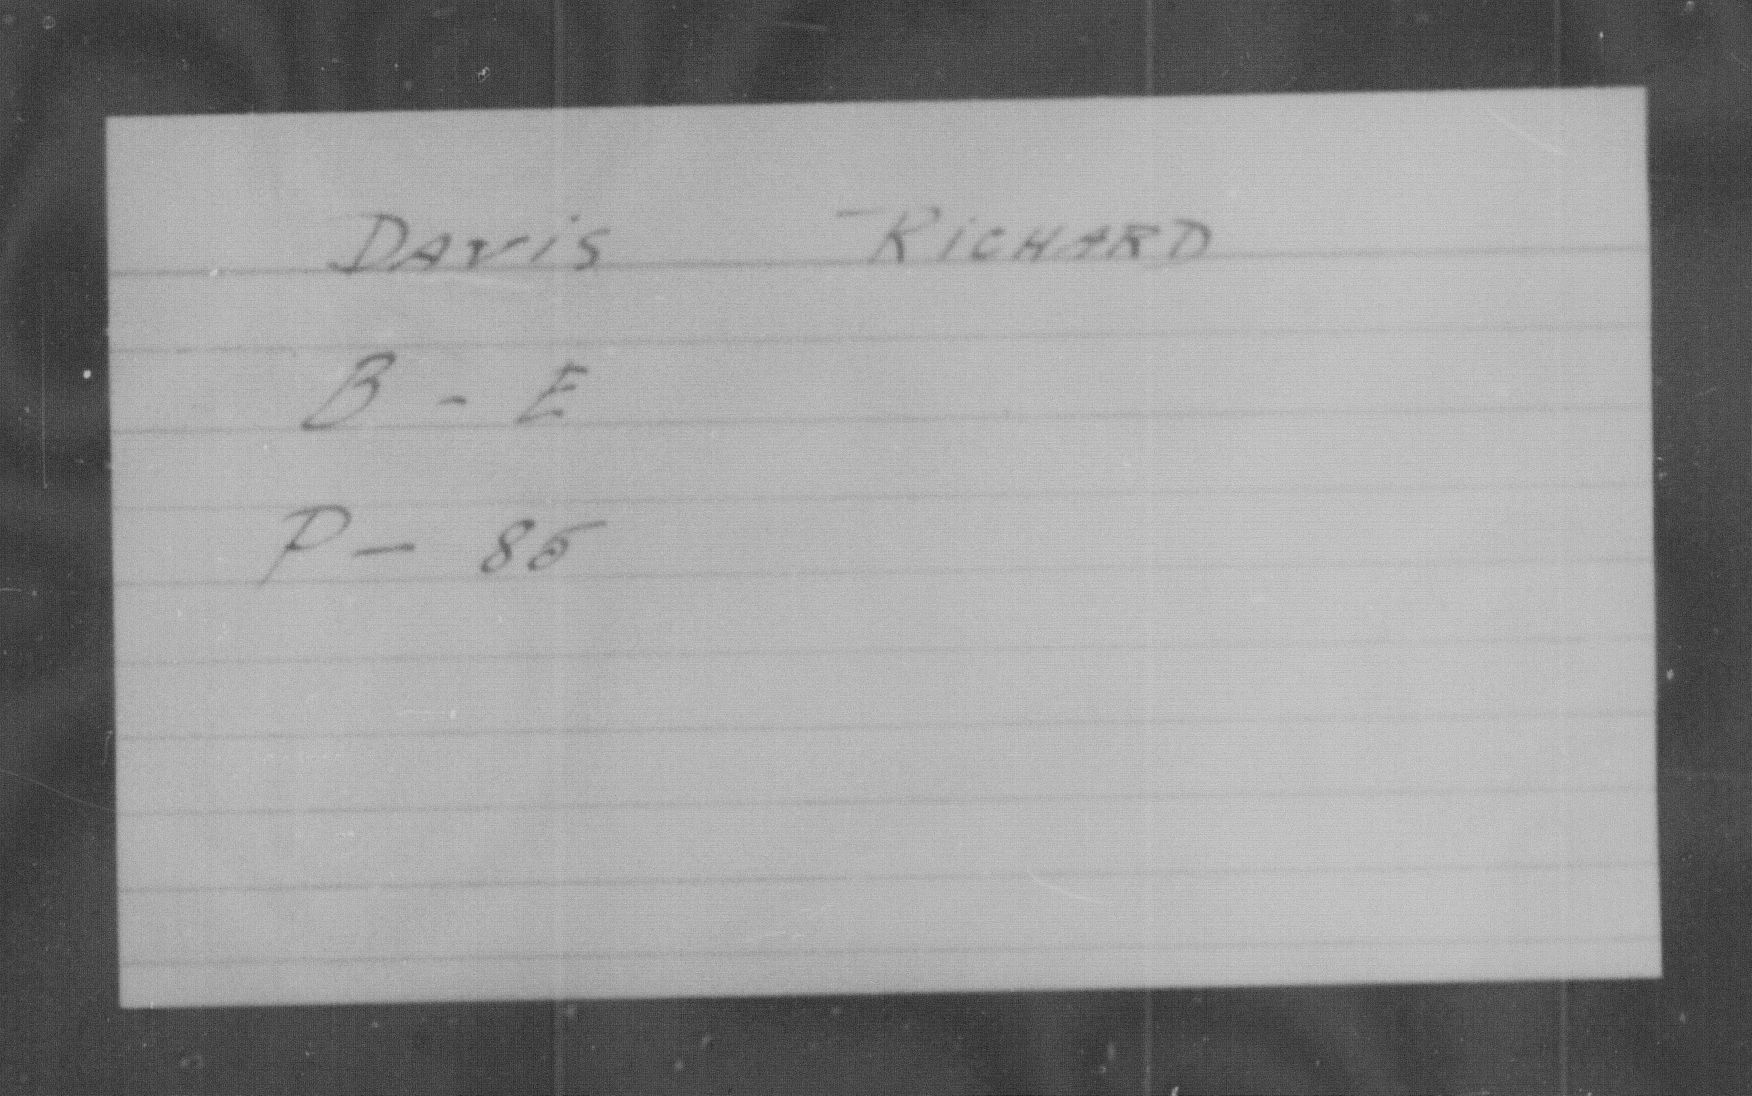 DAVIS RICHARD
B - E
P - 85